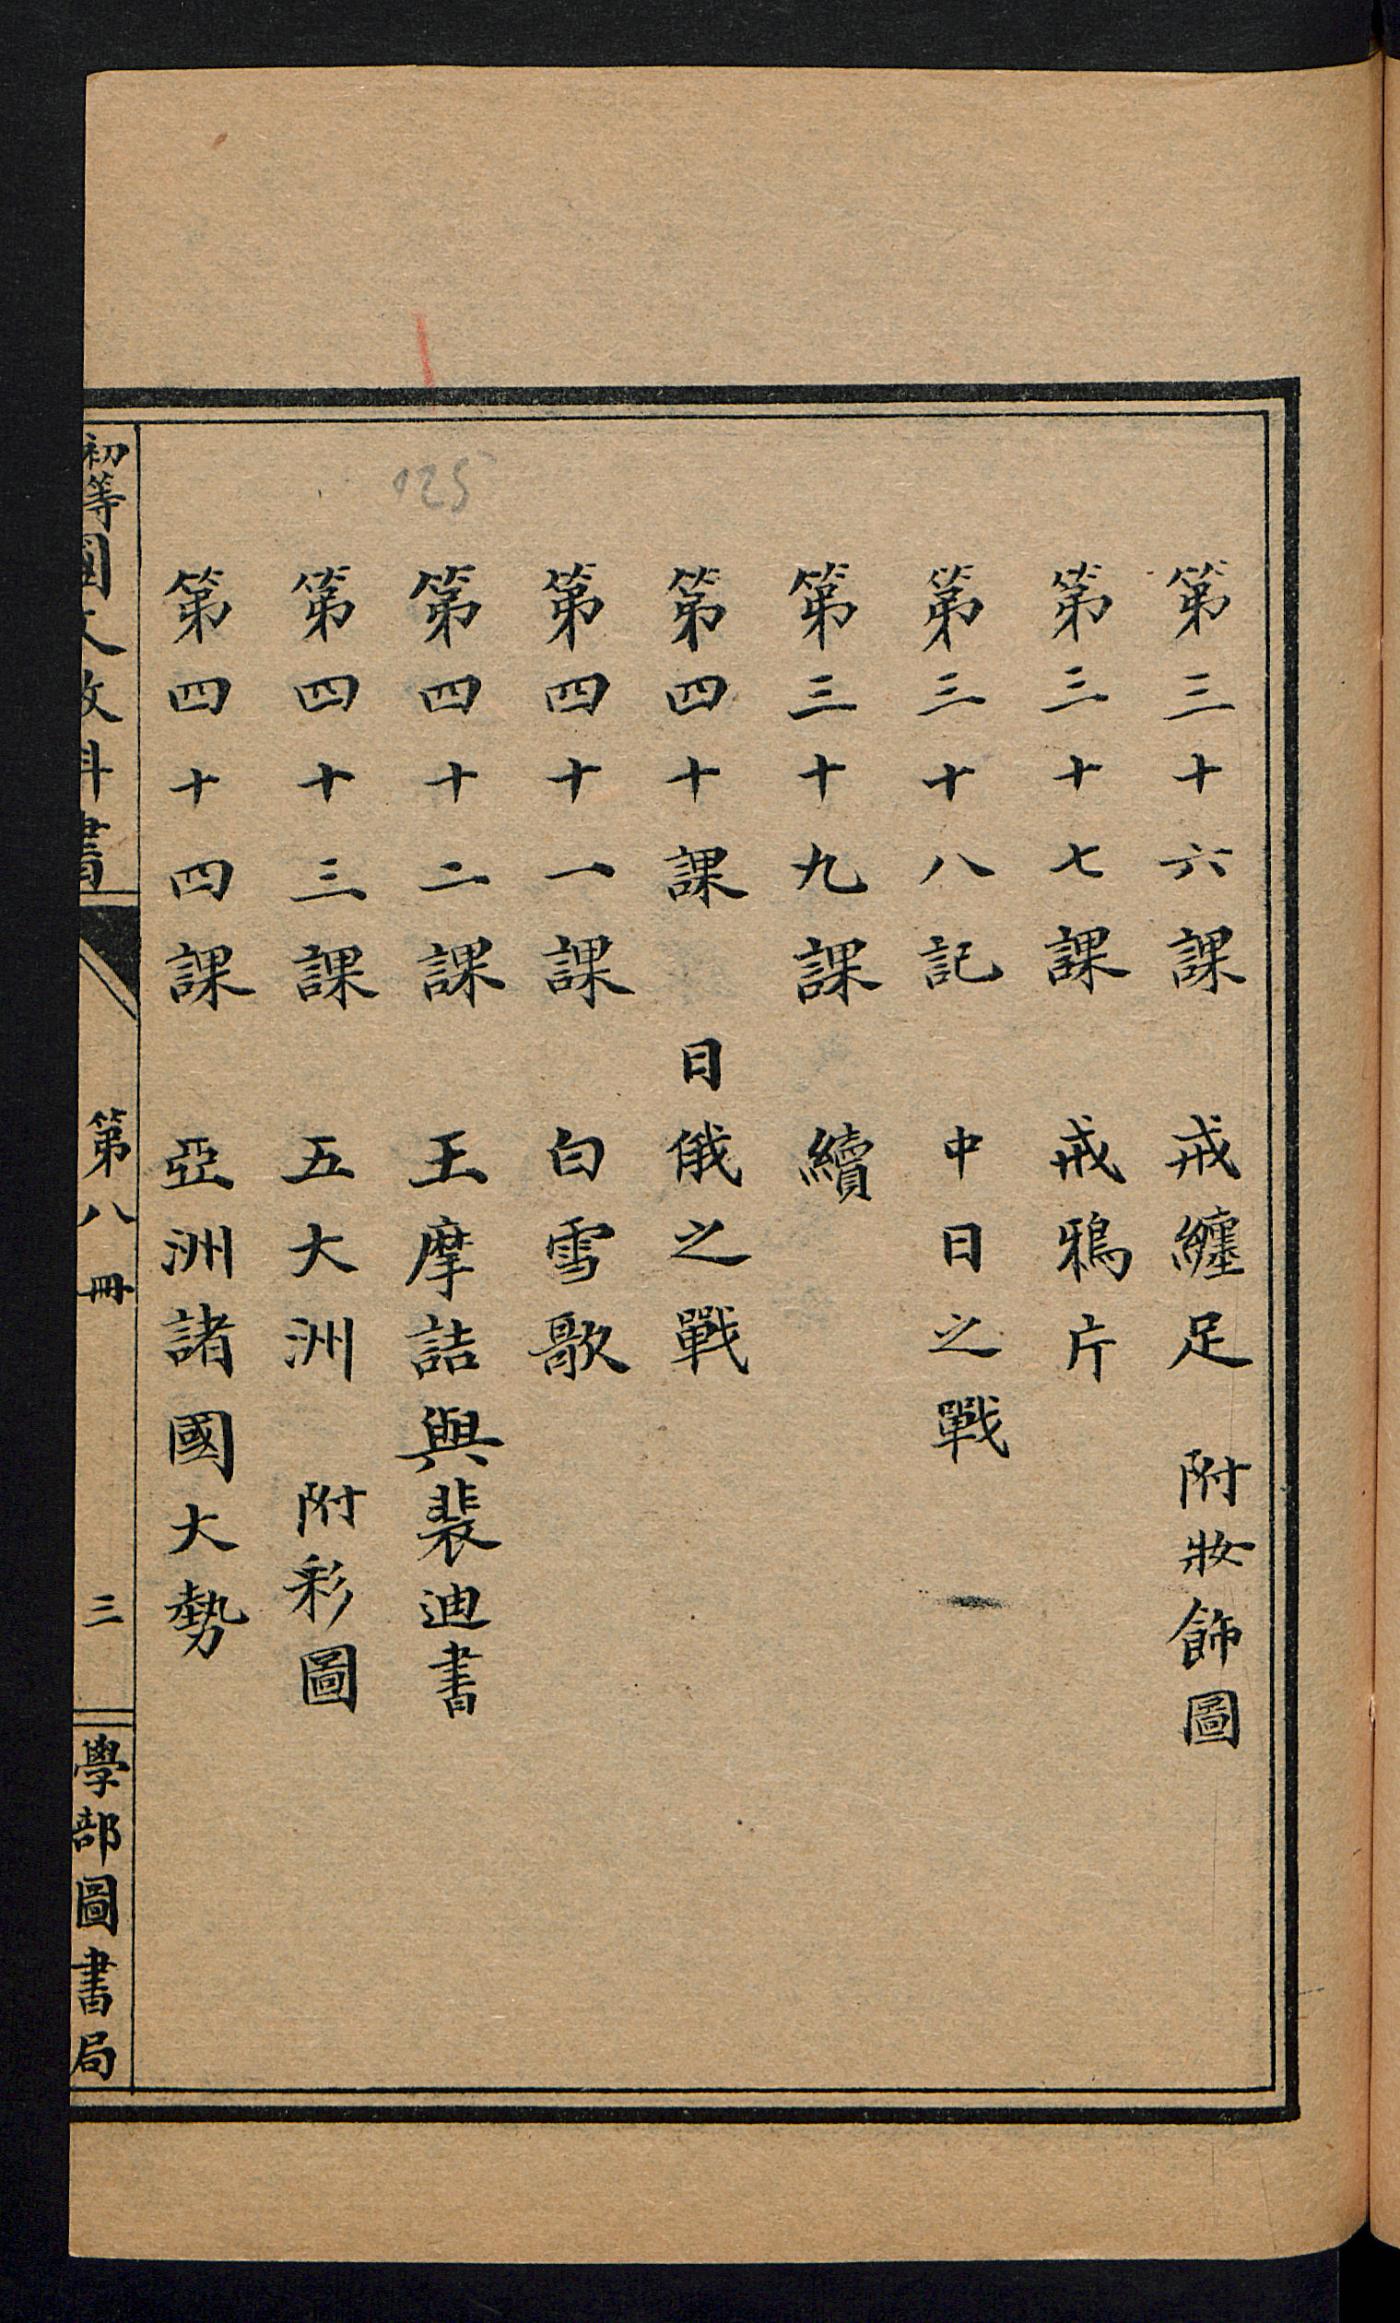 第三十六課　戒纏足　附妝飾圖
第三十七課　戒鴉片
第三十八記　中日之戰
第三十九課　續
第四十課　日俄之戰
第四十一課　白雪歌
第四十二課　王摩詰與裴迪書
第四十三課　五大洲　附彩圖
第四十四課　亞洲諸國大勢
初等國文教科書　第八冊　三　學部圖書局
125